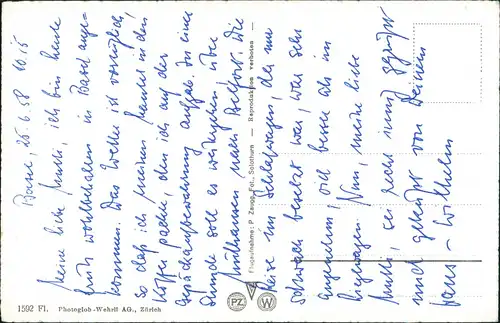 Basel, 25.6.58 10.15
Meine liebe Mutti, ich bin heute
früh wohlbehalten in Basel ange-
kommen. Das Wetter ist vorzüglich,
so daß ich meinen Mantel in den
Koffer packe, den ich auf der
Gepäckaufbewahrung aufgab. In einer
Stunde soll es weitergehen über
Mülhausen nach Belfort. Die
Reise im Schlafwagen, der nur
schwach besetzt war, war sehr
angenehm, viel besser als im
Liegewagen. Nun, meine liebe
Mutti, sei recht innig gegrüßt
und geküßt von Deinem
Hans-Wilhelm
Flugaufnahme: P. Zaugg, Fot., Solothurn — Reproduktion verboten
1592 Fl. Photoglob-Wehrli AG., Zürich
PZ W